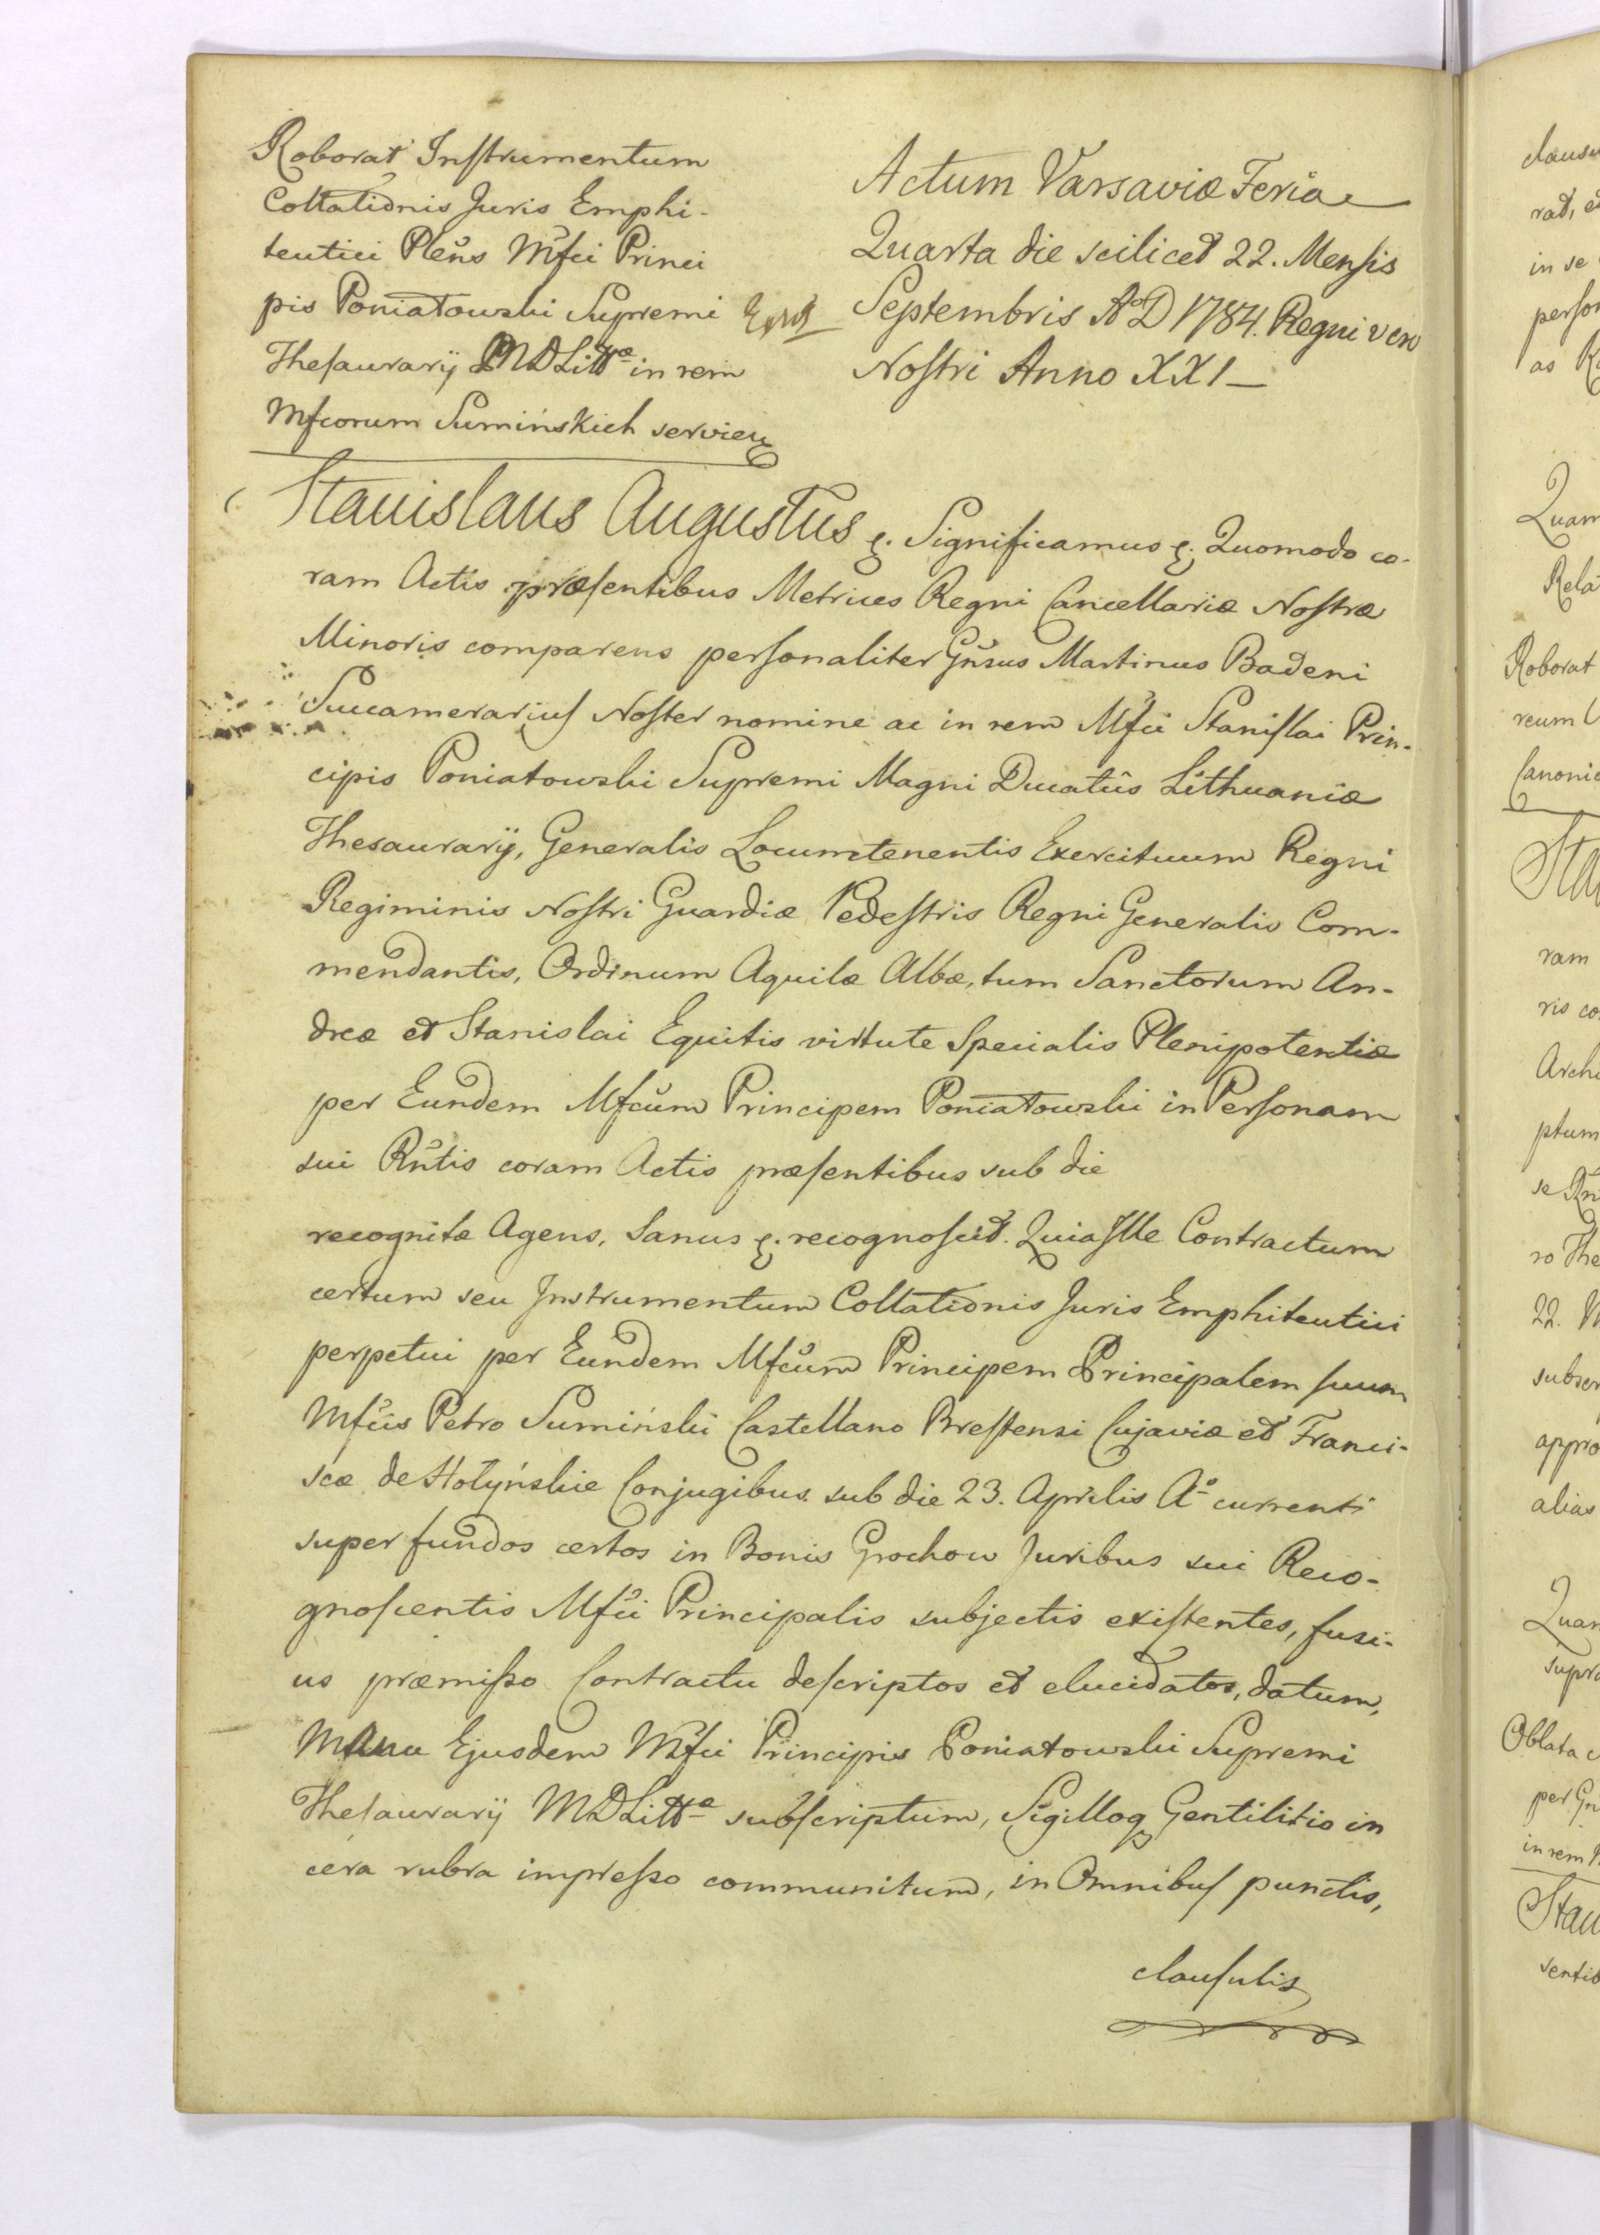 Roborat Instrumentum
Collationis Juris Emphi-
teutici Pleñs Mfci Princi
pis Poniatowski Supremi
Thesaurarÿ MDLittæ in rem
Mfcorum Sumińskich servien
Actum Varsaviæ Feria
Quarta die scilicet 22. Mensis
Septembris AoD 1784. Regni vero
Nostri Anno XXI_
Stanislaus Augustus &. Significamus &. Quomodo co-
ram Actis præsentibus Metrices Regni Cancellariæ Nostræ
Minoris comparens personaliter Gñsus Martinus Badeni
Succamerarius Noster nomine ac in rem Mfci Stanislai Prin-
cipis Poniatowski Supremi Magni Ducatûs Lithuaniæ
Thesaurarÿ, Generalis Locumtenentis Exercituum Regni
Regiminis Nostri Guardiæ Pedestris Regni Generalis Com-
mendantis, Ordinum Aquilæ Albæ, tum Sanctorum An-
dreæ et Stanislai Equitis virtute Specialis Plenipotentiæ
per Eundem Mfcum Principem Poniatowski in Personam
sui Rñtis coram Actis præsentibus sub die
recognitæ Agens, Sanus &. recognoscit. Quia Ille Contractum
certum seu Instrumentum Collationis Juris Emphiteutici
perpetui per Eundem Mfcum Principem Principalem suum
Mfcis Petro Sumiński Castellano Brestensi Cujaviæ et Franci-
scæ de Hołyńskie Conjugibus sub die 23. Aprilis Ao currenti
super fundos certos in Bonis Grochow Juribus sui Reco-
gnoscentis Mfci Principalis subjectis existentes, fusi-
us præmisso Contractu descriptos et elucidatos, datum,
Manu Ejusdem Mfci Principis Poniatowski Supremi
Thesaurarÿ MDLittæ subscriptum, Sigilloq Gentilitio in
cera rubra impresso communitum, in Omnibus punctis,
clausulis